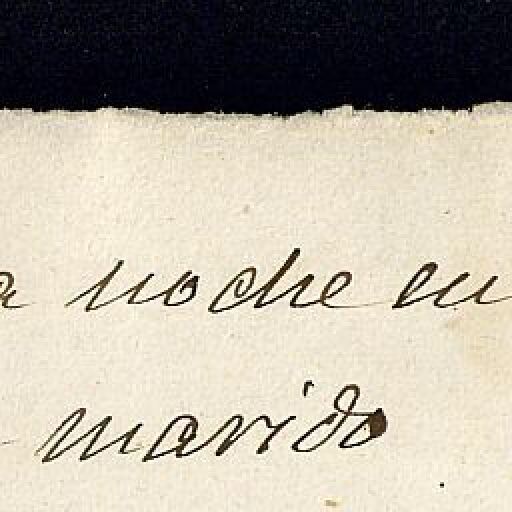 a noche en
marido